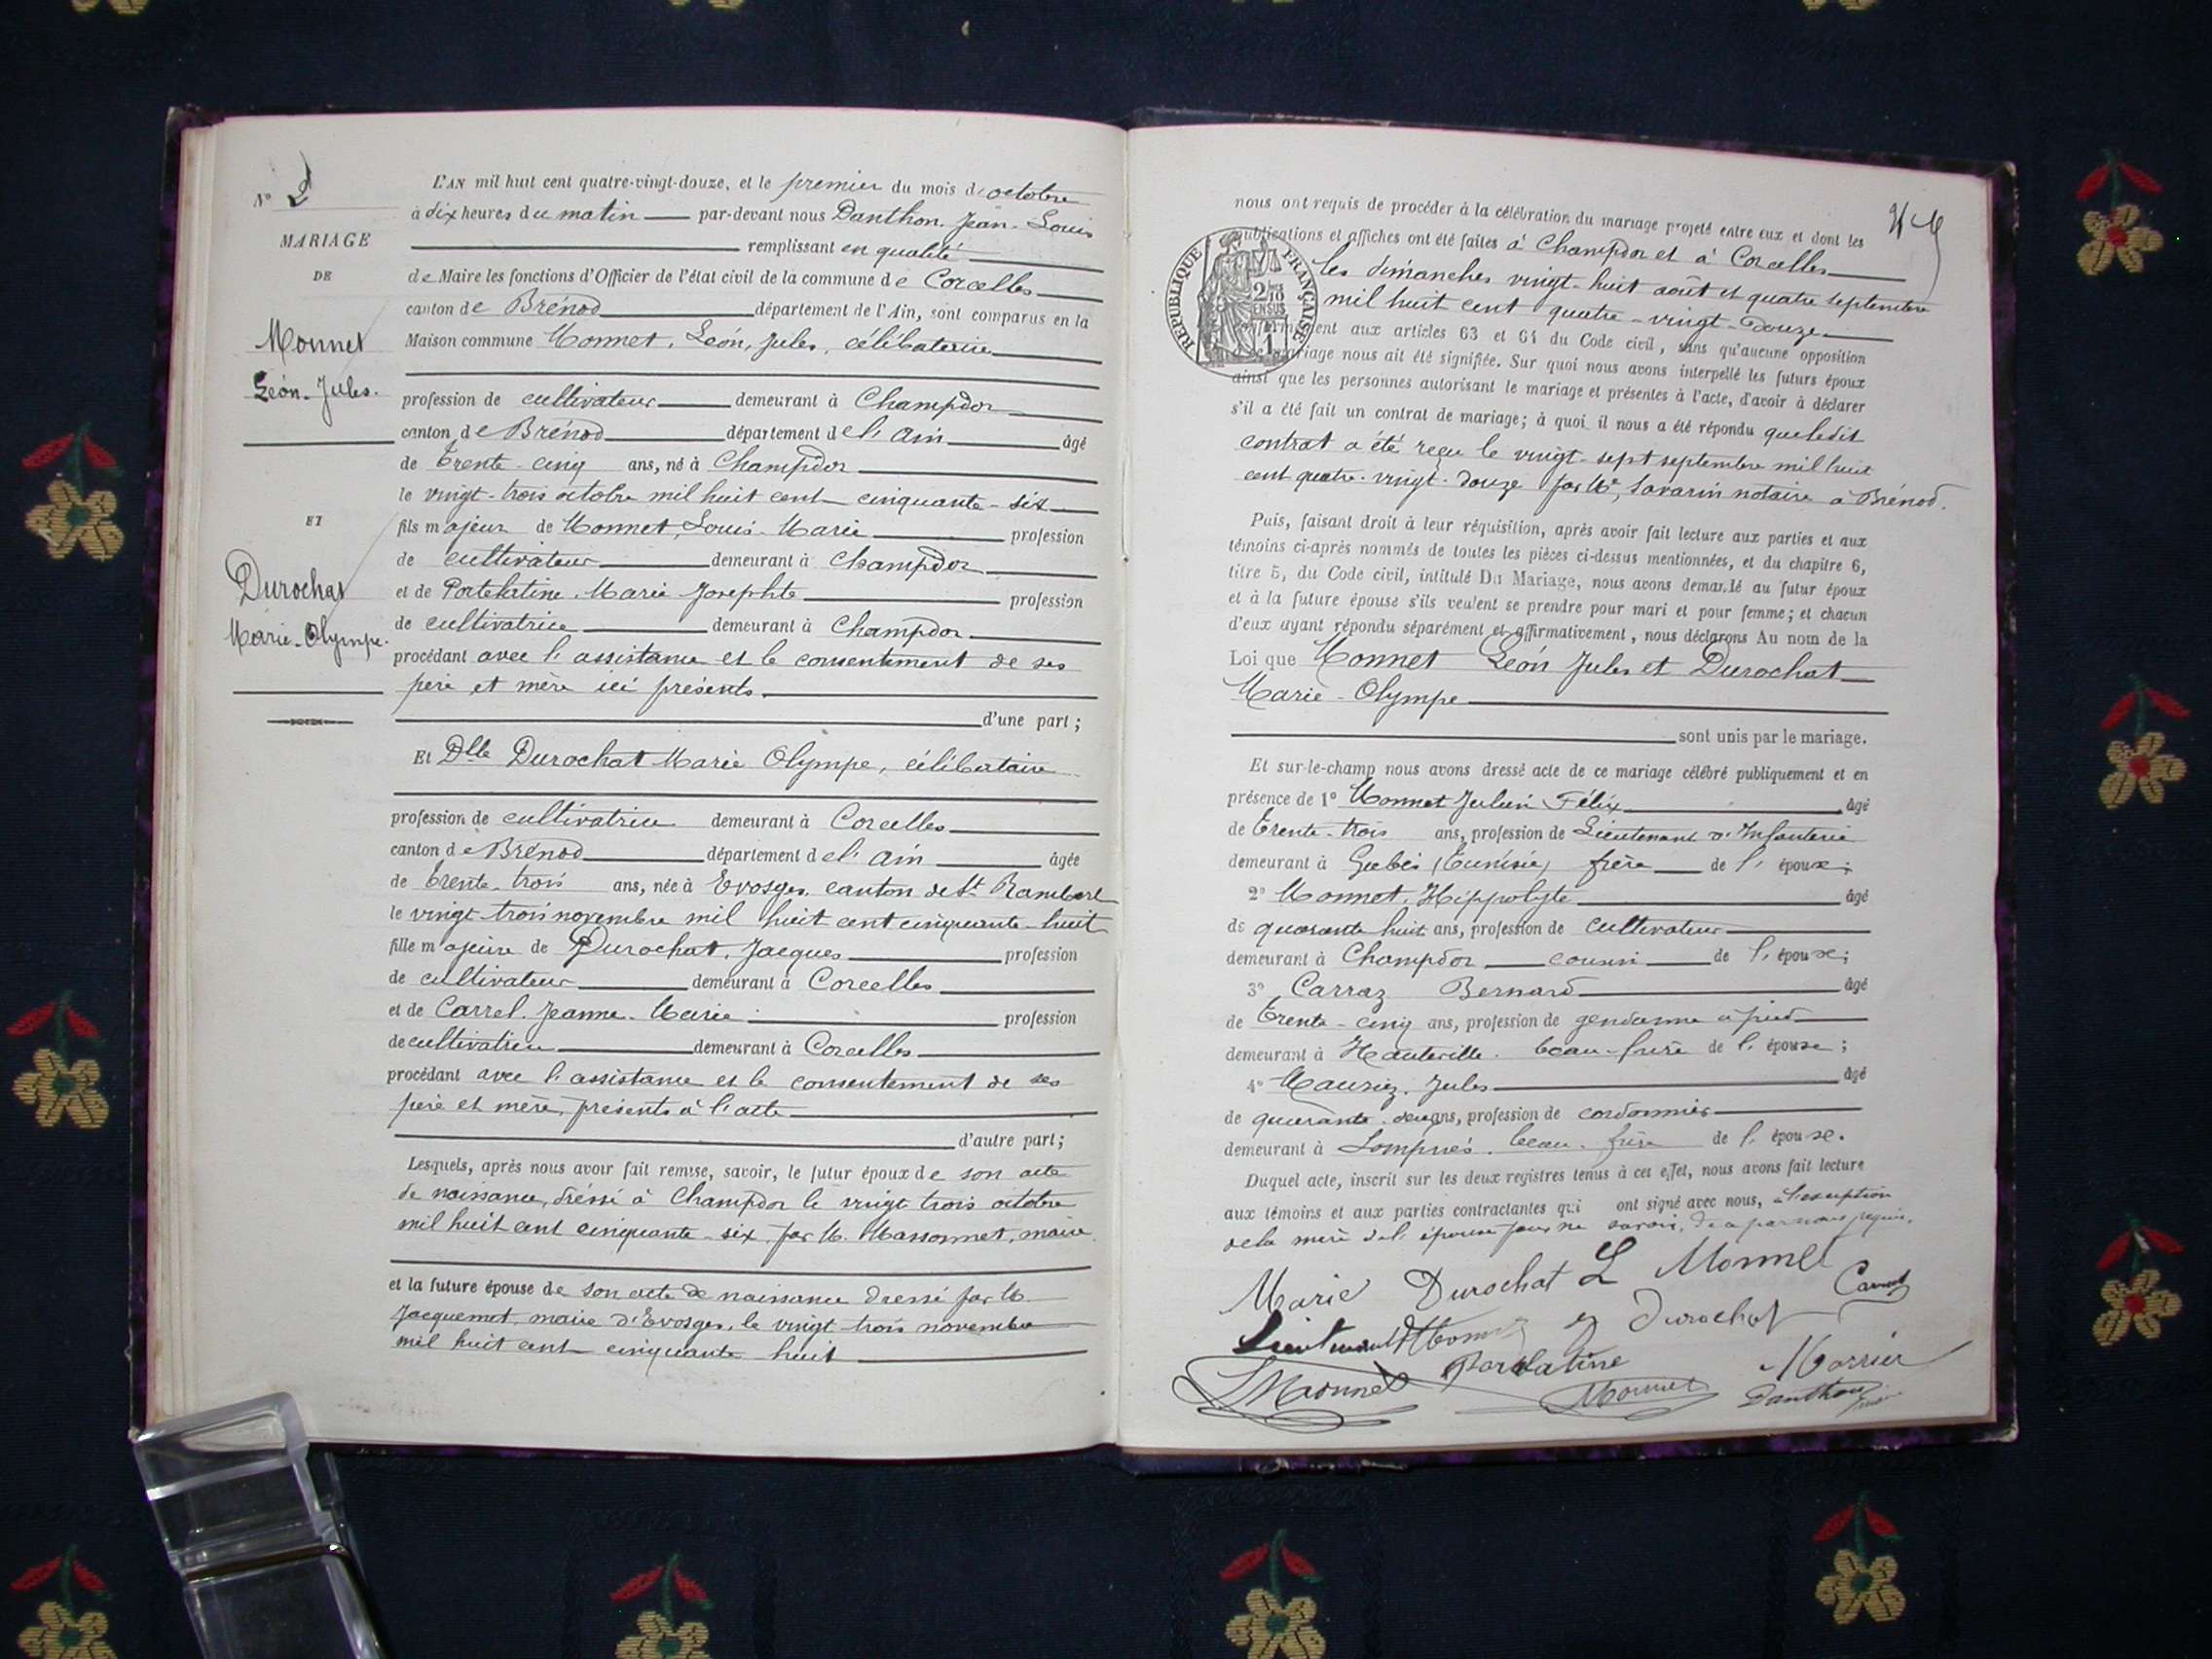 N° 2
MARIAGE
DE
Monnet
Léon-Jules.
ET
Durochat
Marie-Olympe.
L'AN mil huit cent quatre-vingt-douze, et le premier du mois d'octobre
à dix heures du matin par-devant nous Danthon Jean-Louis
remplissant en qualité
de Maire les fonctions d'Officier de l'état civil de la commune de Corcelles
canton de Brénod département de l'Ain, sont comparus en la
Maison commune Monnet, Léon, Jules, célibataire
profession de cultivateur demeurant à Champdor
canton de Brénod département de l'Ain âgé
de trente-cinq ans, né à Champdor
le vingt-trois octobre mil huit cent cinquante-six
fils majeur de Monnet, Louis-Marie profession
de cultivateur demeurant à Champdor
et de Portelatine Marie Josephte profession
de cultivatrice demeurant à Champdor
procédant avec l'assistance et le consentement de ses
père et mère ici présents.
d'une part;
Et Dlle Durochat Marie Olympe, célibataire
profession de cultivatrice demeurant à Corcelles
canton de Brénod département de l'Ain âgée
de trente-trois ans, née à Evosges canton de St Rambert
le vingt-trois novembre mil huit cent cinquante-huit
fille majeure de Durochat, Jacques profession
de cultivateur demeurant à Corcelles
et de Carrel Jeanne-Marie profession
de cultivatrice demeurant à Corcelles
procédant avec l'assistance et le consentement de ses
père et mère, présents à l'acte
d'autre part;
Lesquels, après nous avoir fait remise, savoir, le futur époux de son acte
de naissance, dréssé à Champdor le vingt trois octobre
mil huit cent cinquante-six, par M. Massonnet, maire
et la future épouse de son acte de naissance dressé par M.
Jacquemet, maire d'Evosges, le vingt trois novembre
mil huit cent cinquante huit
nous ont requis de procéder à la célébration du mariage projeté entre eux et dont les
publications et affiches ont été faites à Champdor et à Corcelles
les dimanches vingt-huit août et quatre septembre
mil huit cent quatre-vingt-douze
RÉPUBLIQUE FRANÇAISE
2/10
EN SUS
ent aux articles 63 et 64 du Code civil, sans qu'aucune opposition
mariage nous ait été signifiée. Sur quoi nous avons interpellé les futurs époux
ainsi que les personnes autorisant le mariage et présentes à l'acte, d'avoir à déclarer
s'il a été fait un contrat de mariage; à quoi il nous a été répondu que ledit
contrat a été reçu le vingt-sept septembre mil huit
cent quatre-vingt-douze par Me Savarin notaire à Brénod.
Puis, faisant droit à leur réquisition, après avoir fait lecture aux parties et aux
témoins ci-après nommés de toutes les pièces ci-dessus mentionnées, et du chapitre 6,
titre 5, du Code civil, intitulé Du Mariage, nous avons demandé au futur époux
et à la future épouse s'ils veulent se prendre pour mari et pour femme; et chacun
d'eux ayant répondu séparément et affirmativement, nous déclarons Au nom de la
Loi que Monnet Léon Jules et Durochat
Marie-Olympe
sont unis par le mariage.
Et sur-le-champ nous avons dressé acte de ce mariage célébré publiquement et en
présence de 1° Monnet Julien Félix âgé
de trente-trois ans, profession de Lieutenant d'Infanterie
demeurant à Gabès (Tunisie) frère de l'époux;
2° Monnet, Hippolyte âgé
de quarante huit ans, profession de cultivateur
demeurant à Champdor cousin de l'époux;
3° Carraz Bernard âgé
de trente-cinq ans, profession de gendarme à pied
demeurant à Hauteville. beau-frère de l'épouse;
4° Jules âgé
de quarante-deux ans, profession de cordonnier
demeurant à Lompnés. beau-frère de l'épouse.
Duquel acte, inscrit sur les deux registres tenus à cet effet, nous avons fait lecture
aux témoins et aux parties contractantes qui ont signé avec nous, à l'exception
de la mère de l'épouse pour ne savoir, de ce par nous requise.
Marie Durochat L Monnet
Lieutenant Monnet Durochat
Monnet Portelatine
Monnet Danthon